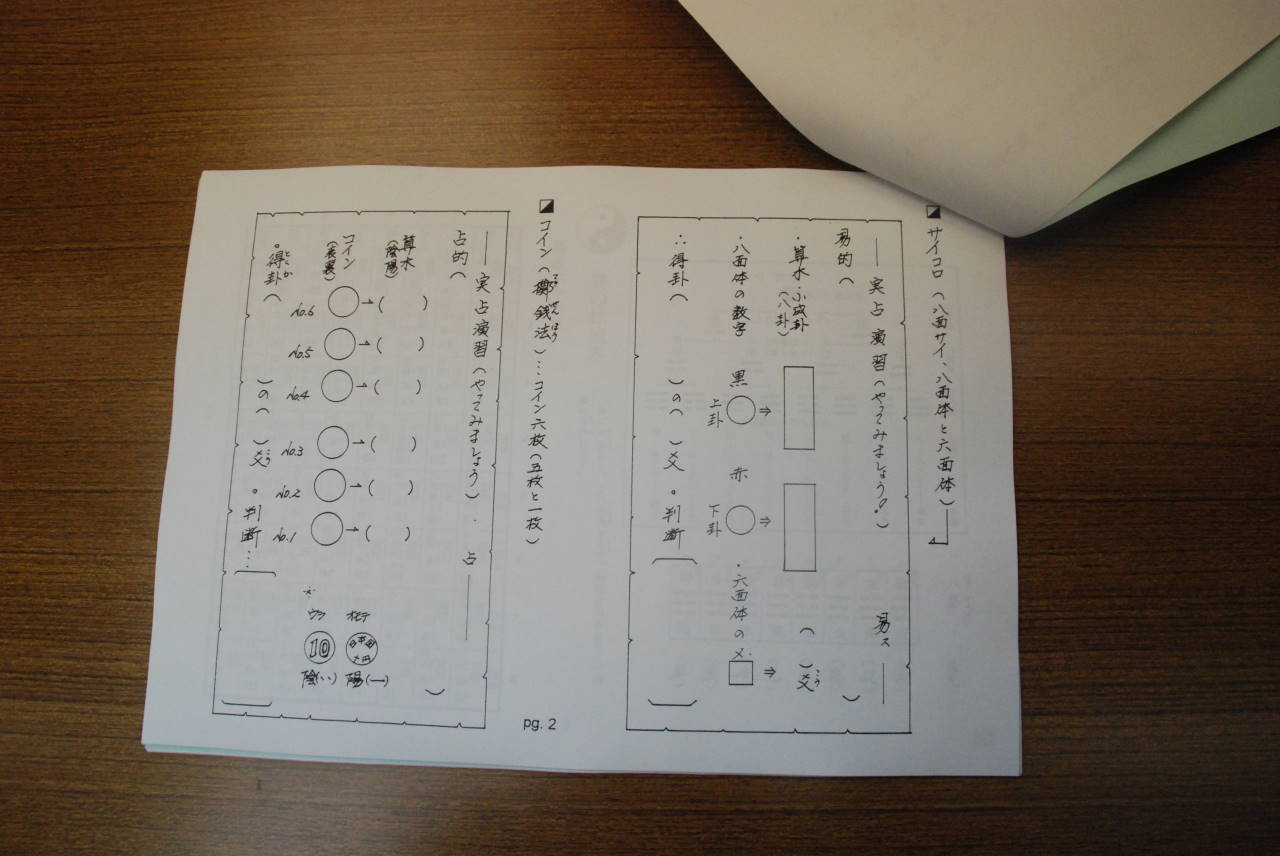 サイコロ(八面サイ、八面体と六面体)
実占演習(やってみましょう!)
易的(
)
・算木・小成卦
(八卦)
・八面体の数字
黒
上卦
⇒
赤
下卦
⇒
・六面体の
⇒
( )爻
こう
∴得卦( )の( )爻
。判断
コイン(擲銭法)…コイン六枚(五枚と一枚)
てきせんほう
実占演習(やってみましょう)
占
占的(
)
算木
(陰陽)
コイン
(表裏)
No.6 → ( )
No.5 → ( )
No.4 → ( )
No.3 → ( )
No.2 → ( )
No.1 → ( )
オモテ
日本国
十円
陽(一)
ウラ
10
陰(‥)
。得卦( )の( )爻
とくか
こう
。判断…
pg. 2